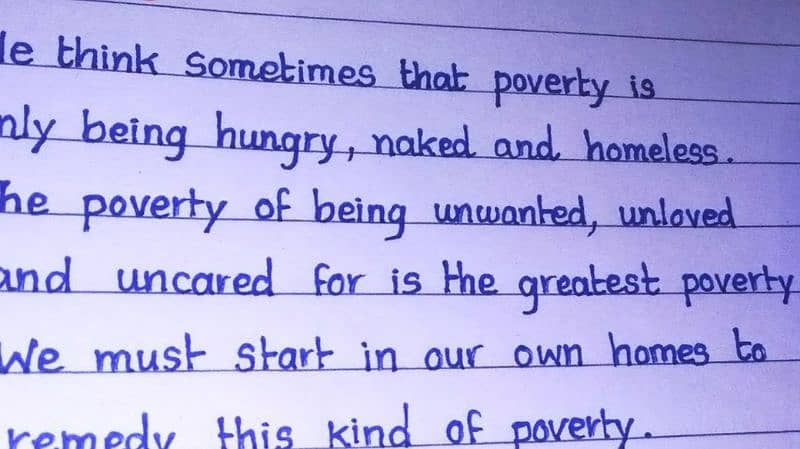 le think sometimes that poverty is
nly being hungry, naked and homeless.
he poverty of being unwanted, unloved
and uncared for is the greatest poverty
We must start in our own homes to
remedy this kind of poverty.